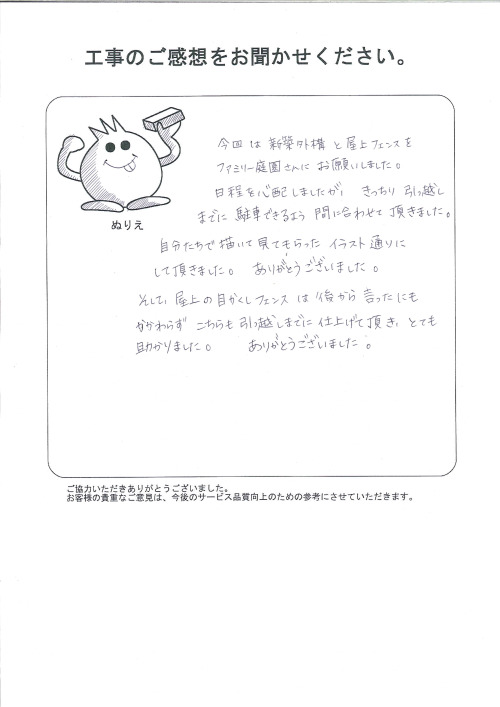 工事のご感想をお聞かせください。
今回は新築外構と屋上フェンスを
ファミリー庭園さんにお願いしました。
日程を心配しましたが、きっちり引っ越し
までに駐車できるよう間に合わせて頂きました。
ぬりえ
自分たちで描いて見てもらったイラスト通りに
して頂きました。ありがとうございました。
そして、屋上の目かくしフェンスは後から言ったにも
かかわらずこちらも引っ越しまでに仕上げて頂き、とても
助かりました。ありがとうございました。
ご協力いただきありがとうございました。
お客様の貴重なご意見は、今後のサービス品質向上のための参考にさせていただきます。